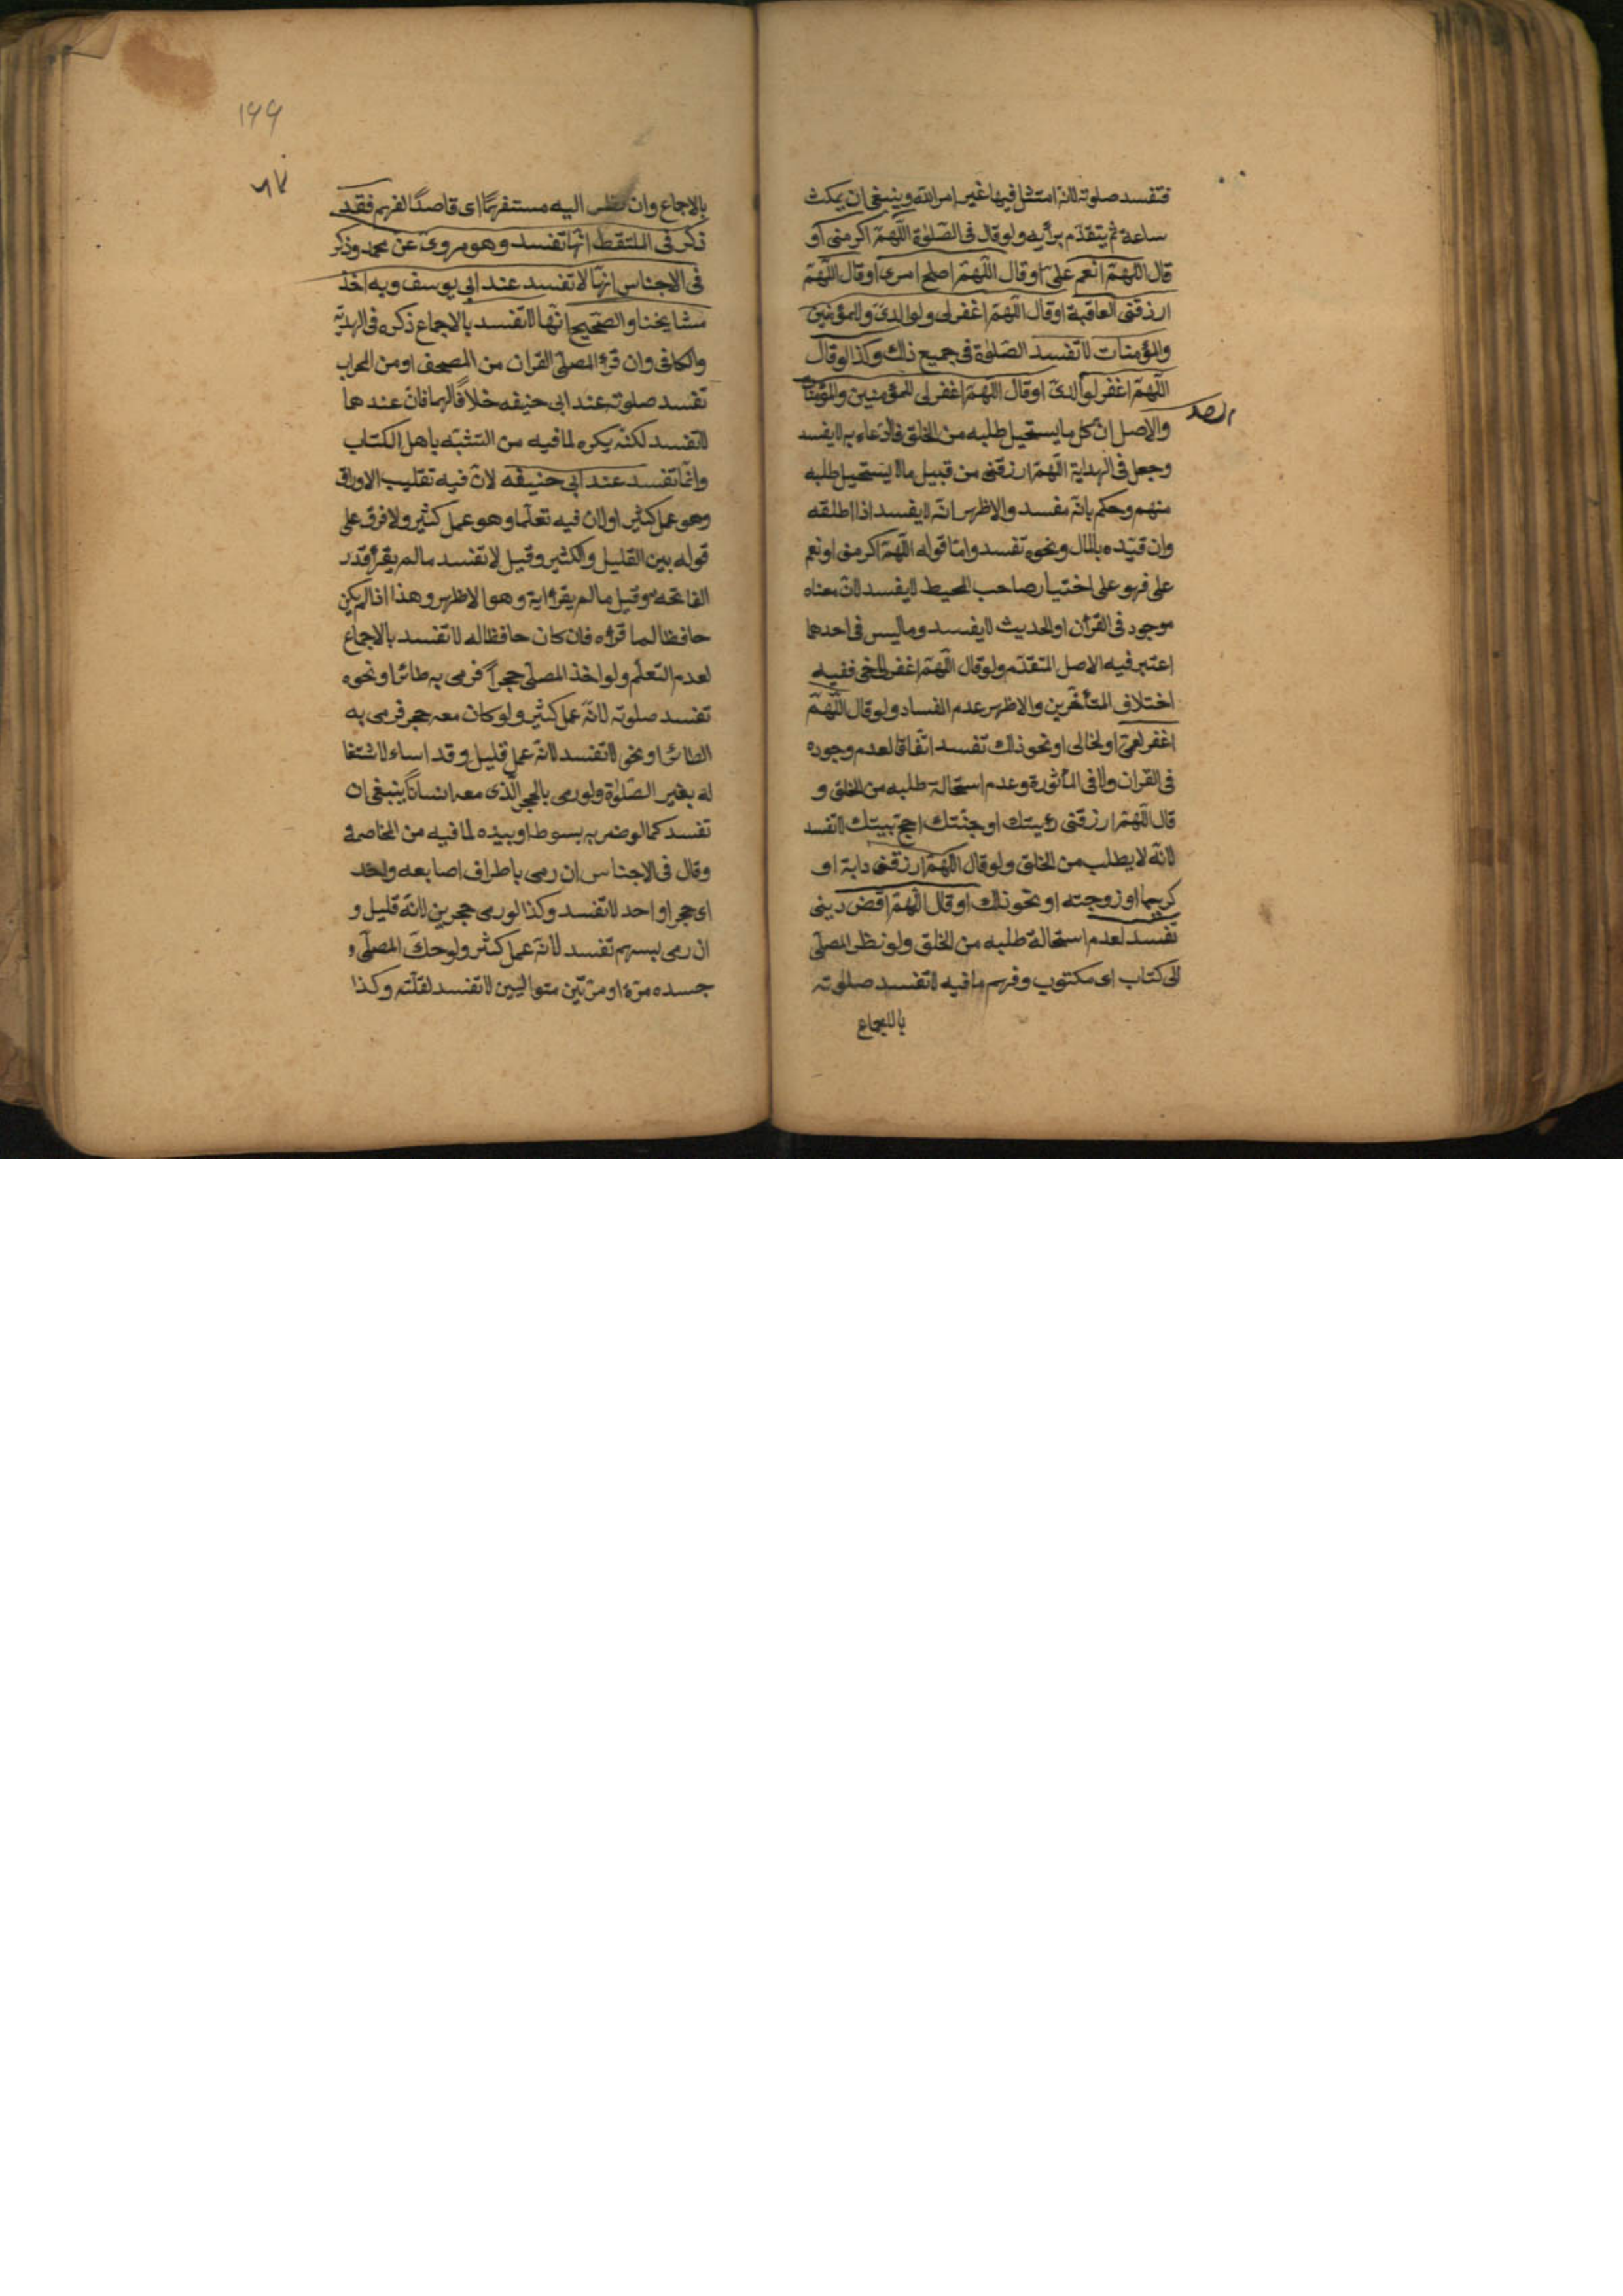 فتفسد صلوته لانه امتثل فيها غير امر الله وينبغى ان يمكث
ساعة ثم يتقدم برأيه ولو قال فى الصلوة اللهم اكرمنى او
قال اللهم انعم على او قال اللهم اصلح امرى او قال اللهم
ارزقنى العافية او قال اللهم اغفر لى ولوالدى وللمؤمنين
والمؤمنات لا تفسد الصلوة فى جميع ذلك وكذا لو قال
اللهم اغفر لوالدى او قال اللهم اغفر لى للمؤمنين والمؤمنات
والاصل ان كل ما يستحيل طلبه من الخلق فالدعاء به لا يفسد
وجعل فى الهداية اللهم ارزقنى من قبيل ما لا يستحيل طلبه
منهم وحكم بانه مفسد والاظهر انه لا يفسد اذا اطلقه
وان قيده بالمال ونحوه تفسد واما قوله اللهم اكرمنى او نعم
على فهو على اختيار صاحب المحيط لا يفسد لان معناه
موجود فى القرأن او الحديث لا يفسد وما ليس فى احدهما
اعتبر فيه الاصل المتقدم ولو قال اللهم اغفر لاخى ففيه
اختلاف المتأخرين والاظهر عدم الفساد ولو قال اللهم
اغفر لعمى او لخالى او نحو ذلك تفسد اتفاقا لعدم وجوده
فى القران ولا فى المأثورة وعدم استحالة طلبه من الخلق و
قال اللهم ارزقنى رؤيتك او جنتك احج بيتك لا تفسد
لانه لا يطلب من الخلق ولو قال اللهم ارزقنى دابة او
كريما او زوجته او نحو ذلك او قال اللهم اقض دينى
تفسد لعدم استحالة طلبه من الخلق ولو نظر المصلى
الى كتاب اى مكتوب وفهم ما فيه لا تفسد صلوته
بالاجماع
۱۶۶
بالاجماع وان نظر اليه مستفهما اى قاصدا لفهم فقد
ذكر فى الملتقط انها تفسد وهو مروى عن محمد وذكر
فى الاجناس انها لا تفسد عند ابى يوسف وبه اخذ
مشايخنا والصحيح انها لا تفسد بالاجماع ذكره فى الهدية
والكافى وان قرء المصلى القران من المصحف او من المحراب
تفسد صلوته عند ابى حنيفه خلافا لهما فان عندهما
لا تفسد لكنه يكره لما فيه من التشبه باهل الكتاب
وانما تفسد عند ابى حنيفه لان فيه تقليب الاوراق
وهو عمل كثير او لان فيه تعلما وهو عمل كثير ولا فرق على
قوله بين القليل والكثير وقيل لا تفسد ما لم يقرأ قدر
الفاتحه وقيل ما لم يقرأ اية وهو الاظهر وهذا اذا لم يكن
حافظا لما قرأه فان كان حافظا له لا تفسد بالاجماع
لعدم التعلم ولو اخذ المصلى حجرا فرمى به طائرا ونحوه
تفسد صلوته لانه عمل كثير ولو كان معه حجر فرمى به
الطائر او نحو لا تفسد لانه عمل قليل وقد اساء لاشتغا
له بغير الصلوة ولو رمى بالحجر الذى معه انسانا ينبغى ان
تفسد كما لو ضربه بسوط او بيده لما فيه من المخاصمة
وقال فى الاجناس ان رمى باطراف اصابعه واحد
اى حجرا واحد لا تفسد وكذا لو رمى حجرين لانه قليل و
ان رمى بسهم تفسد لانه عمل كثر ولو حك المصلى و
جسده مرة او مرتين متواليين لا تفسد لقلته وكذا